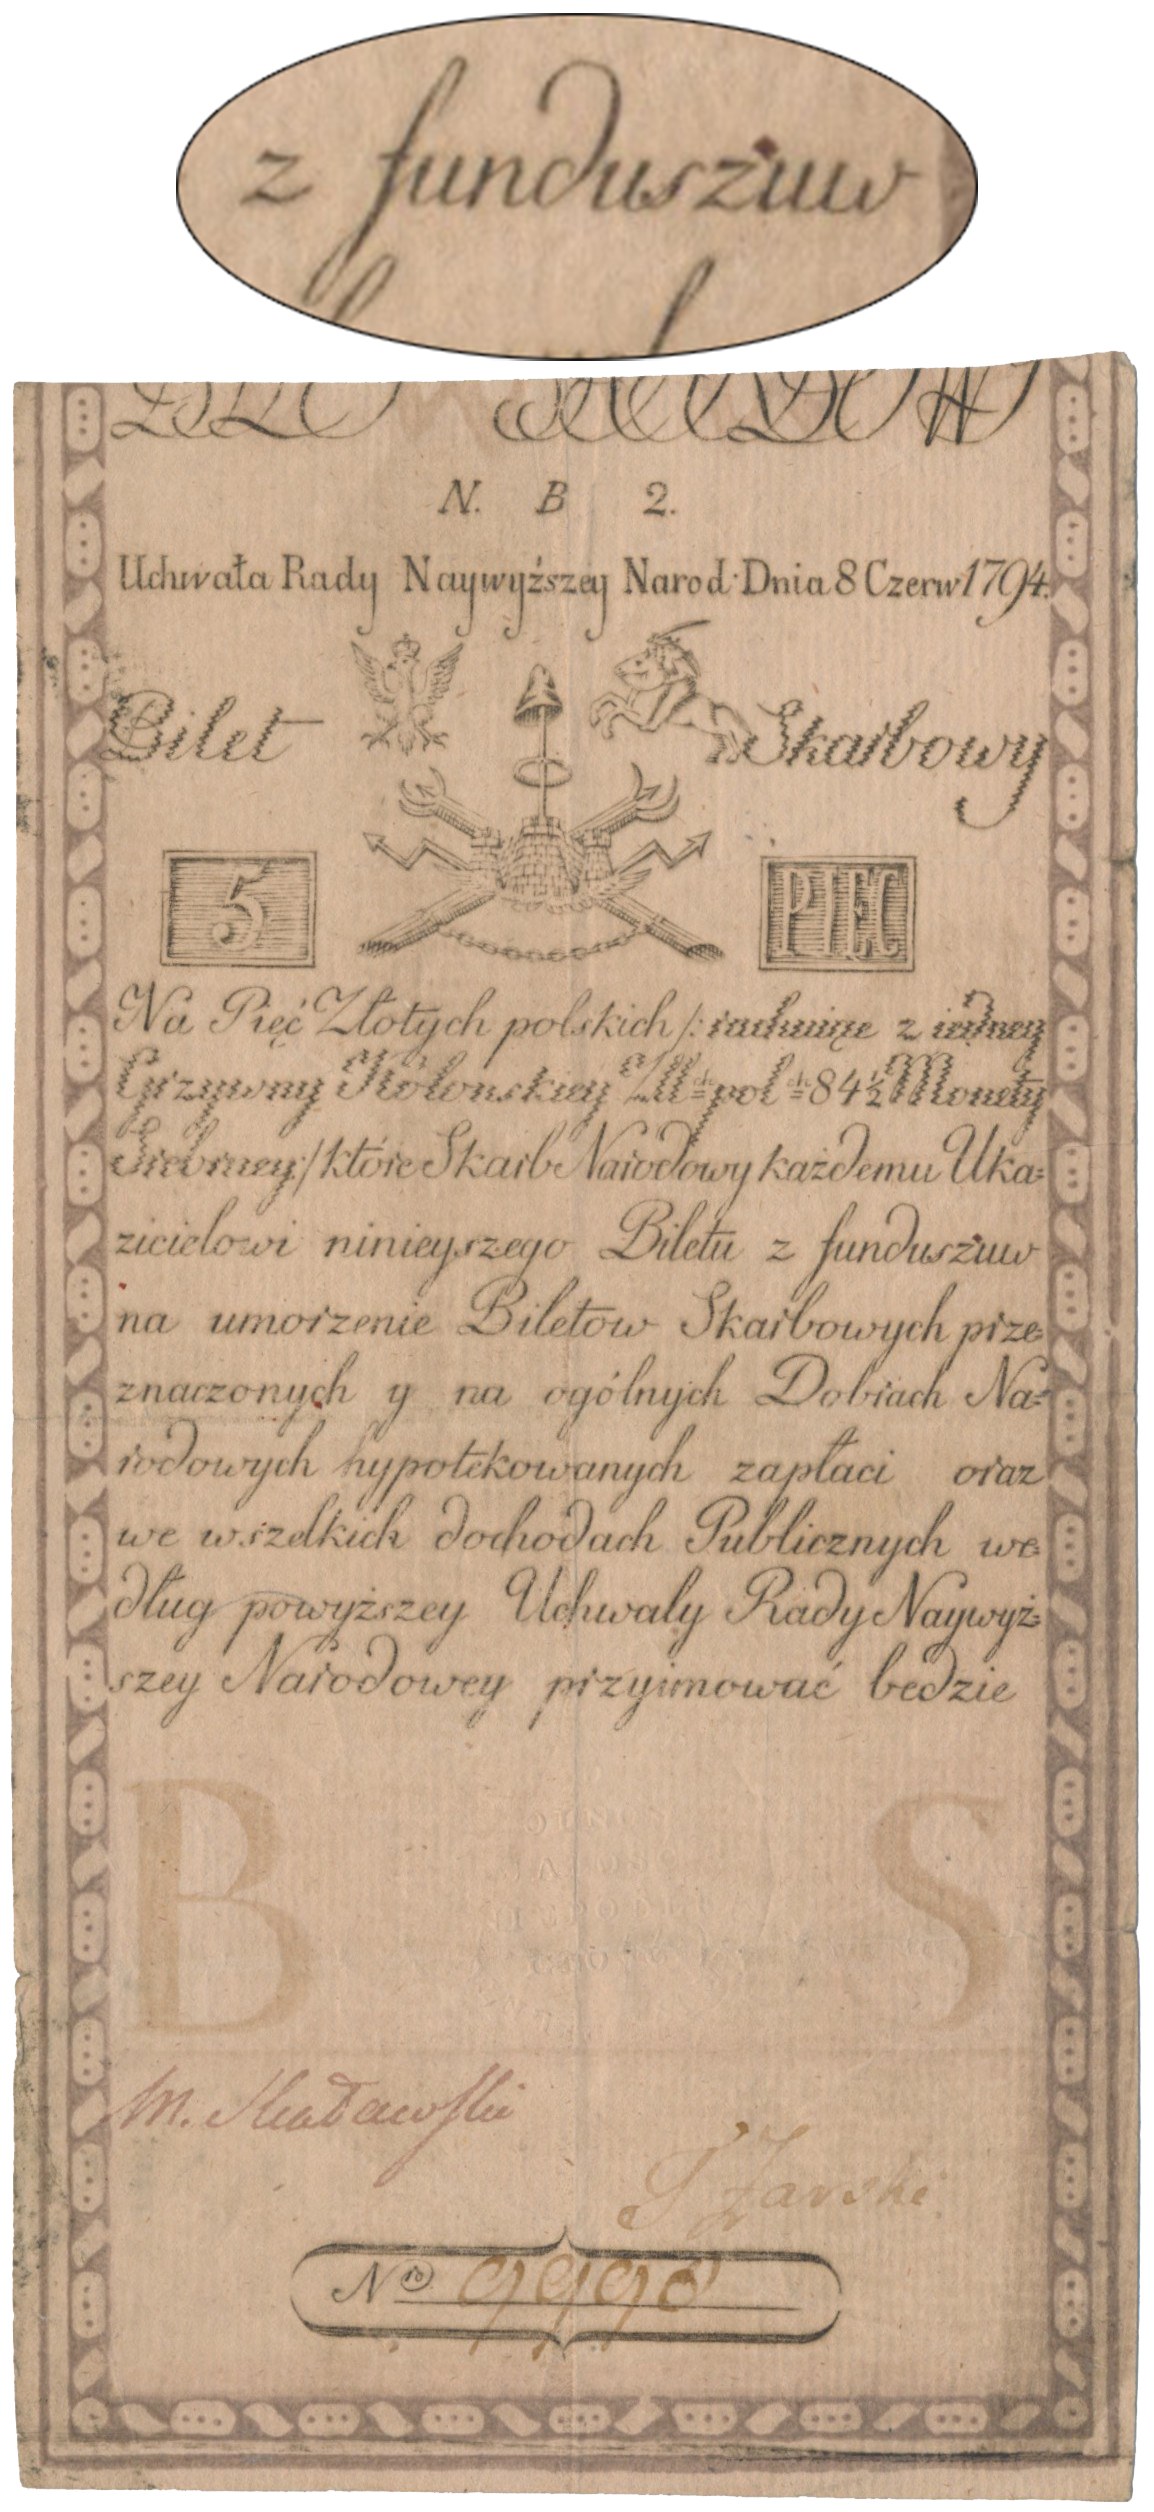 z funduszuw
N. B 2.
Uchwała Rady Naywyższey Narod: Dnia 8 Czerw 1794.
Bilet Skarbowy
5 PIĘC
Na Pięć Złotych polskich /: rachuiąc z iedney
Grzywny Kolonskiey Zll ch pol ch 84 1/2 Monety
Srebrney:/ które Skarb Narodowy każdemu Uka=
zicielowi ninieyszego Biletu z funduszuw
na umorzenie Biletow Skarbowych prze=
znaczonych y na ogólnych Dobrach Na=
rodowych hypotekowanych zapłaci oraz
we wszelkich dochodach Publicznych we=
dług powyższey Uchwały Rady Naywyż=
szey Narodowey przyimować bedzie
B S
M.
J Zarski
Nro 9998